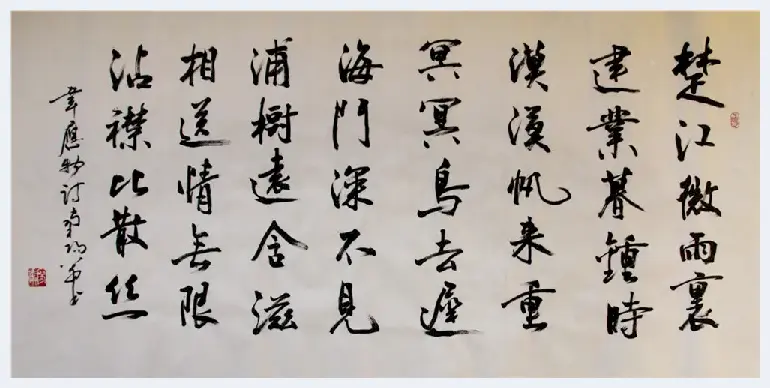 楚江微雨裏
建業暮鍾時
漠漠帆来重
冥冥鳥去遲
海門深不見
浦樹遠含滋
相送情無限
沾襟比散絲
韋應物詩